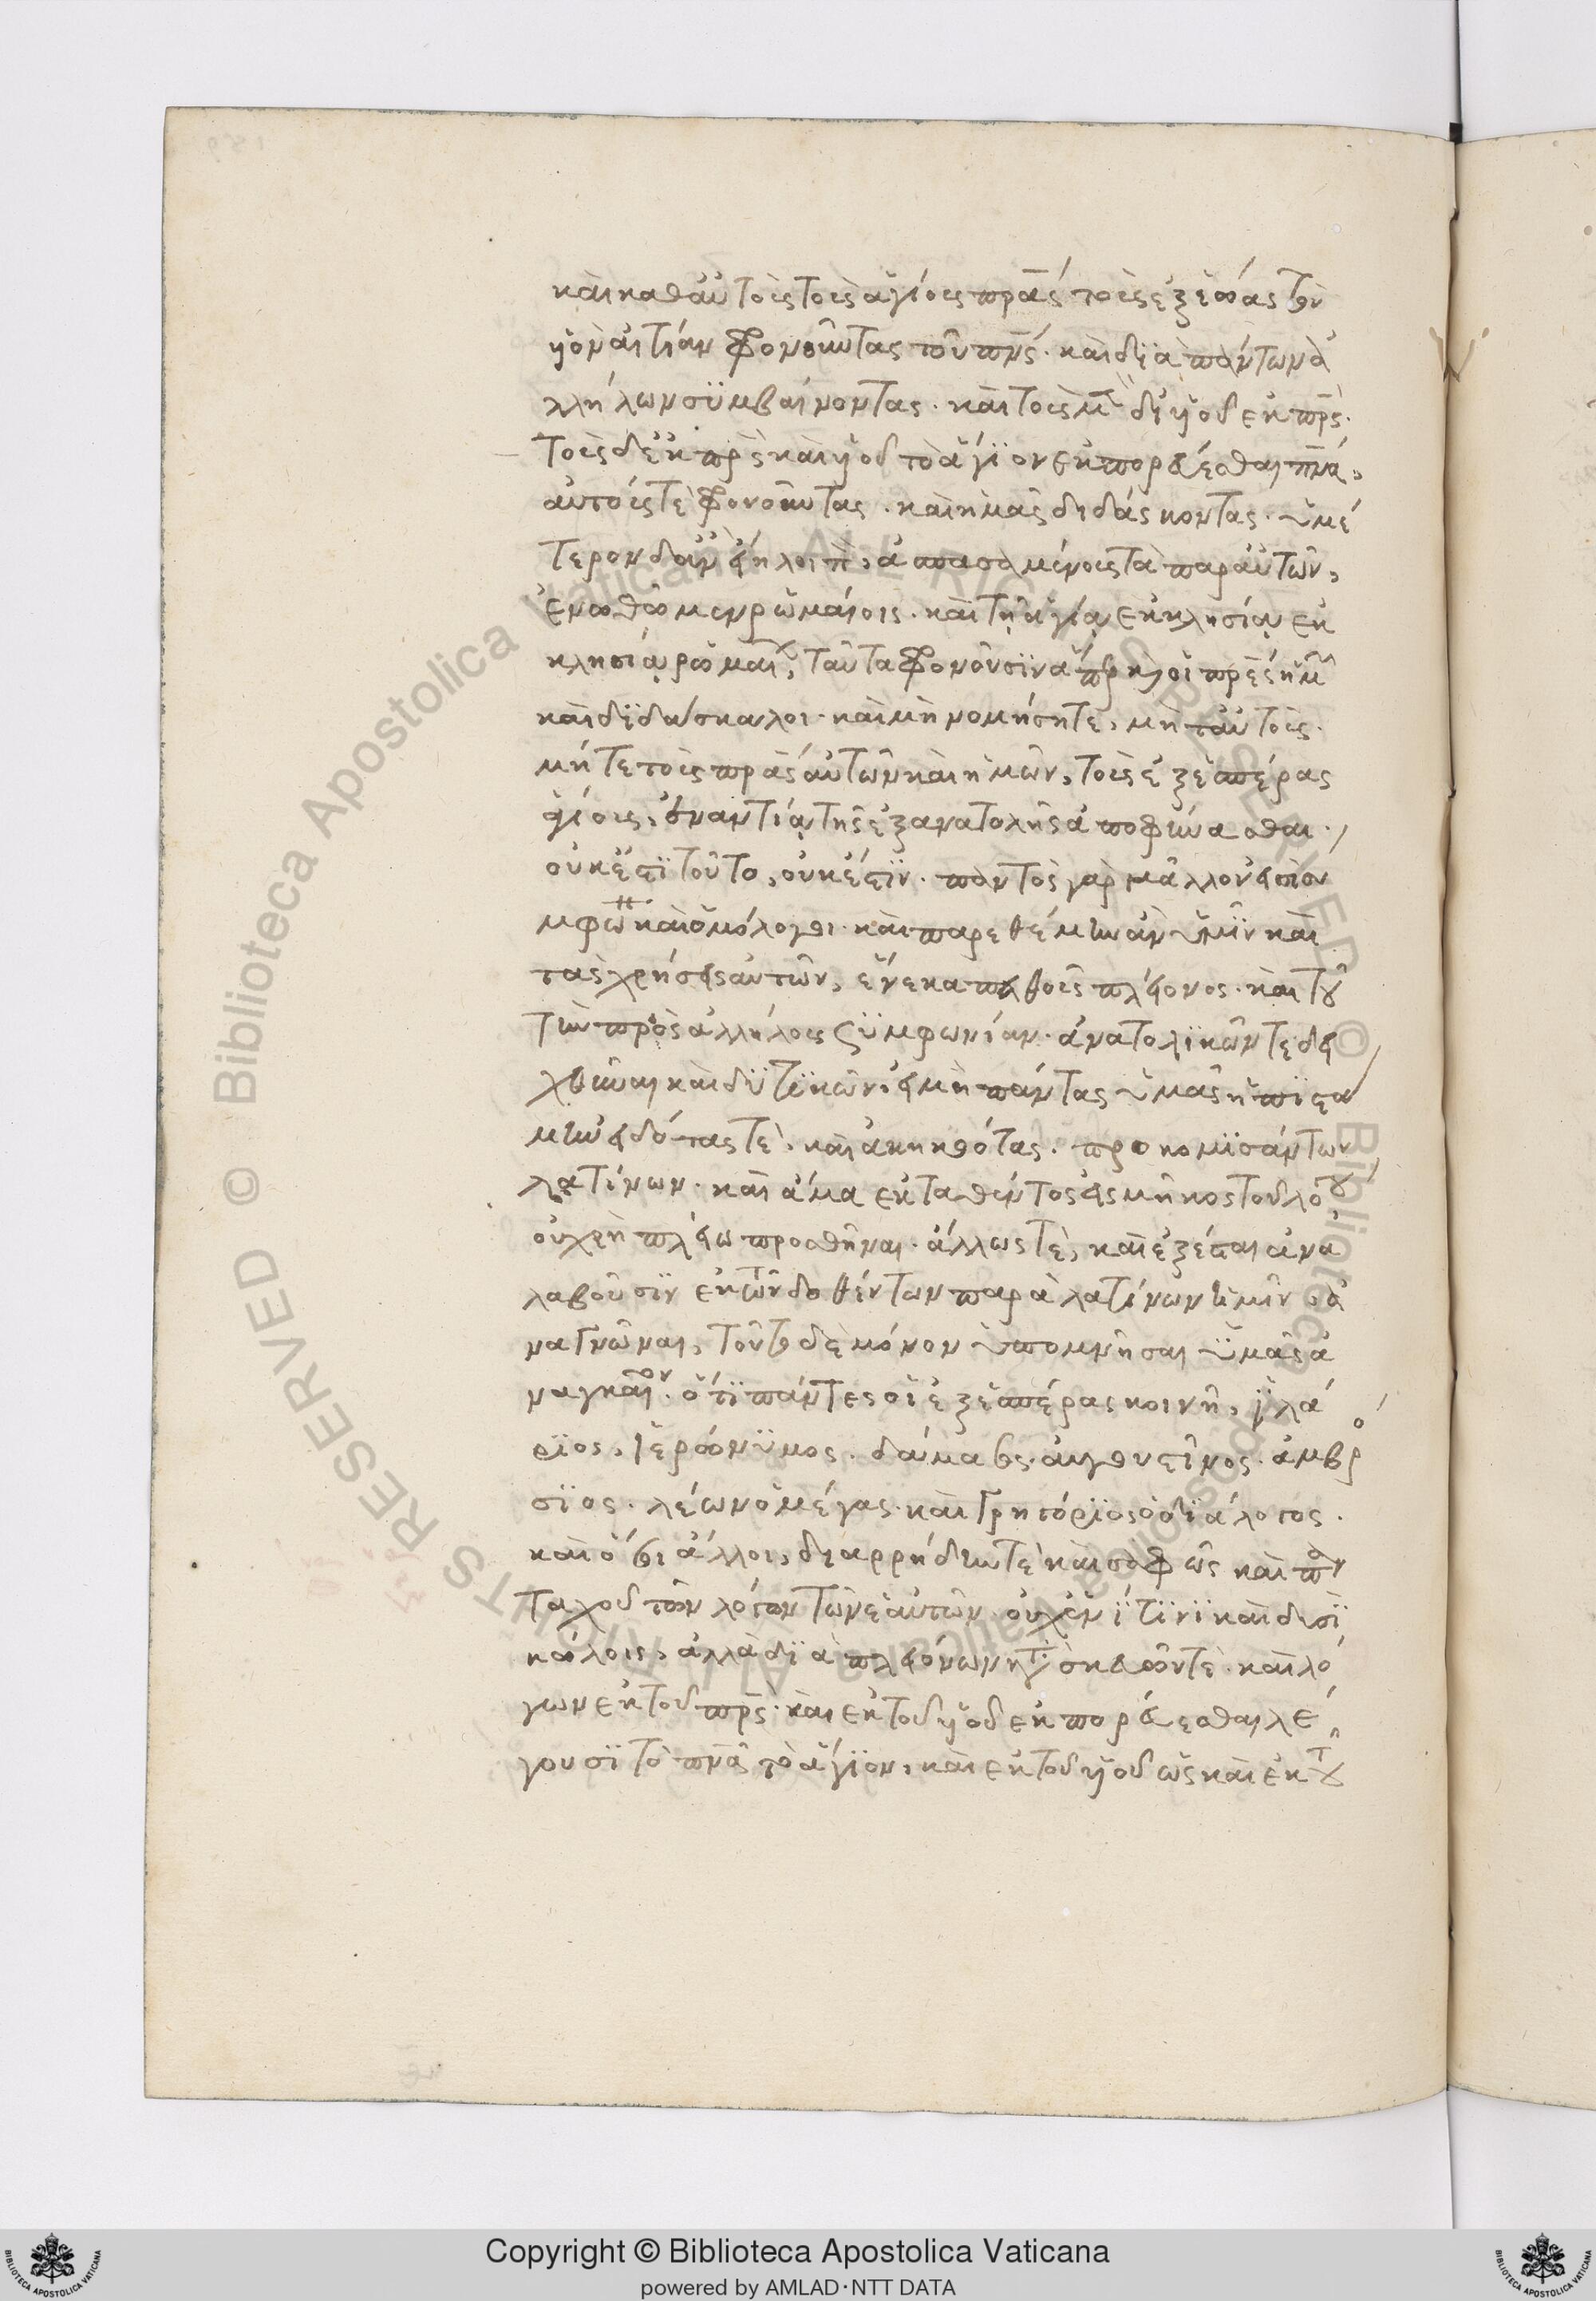 καὶ καθ' αὑτοὺς τοὺς ἁγίους πρας τοὺς ἐξ ἑώας τὸν
υἱὸν αἰτίαν φρονοῦντας τοῦ πνς. καὶ διὰ πάντων ἀ
λλήλων συμβαίνοντας. καὶ τοὺς μὲν δι' υἱοῦ ἐκ πρς.
τοὺς δὲ ἐκ πρς καὶ υἱοῦ τὸ ἅγιον ἐκπορεύεσθαι πνα,
αὐτούς τε φρονοῦντας. καὶ ἡμᾶς διδάσκοντας. ὑμέ
τερον δ' ἂν εἴη λοιπὸν, ἀσπασαμένους τὰ παρ' αὐτῶν,
ἑνωθῶμεν ρωμαίοις. καὶ τῇ ἁγίᾳ ἐκκλησίᾳ ἐκ
κλησίᾳ ρωμαίων, ταῦτα φρονοῦσιν ἅπερ καὶ οἱ πρες ἡμῶν
καὶ διδάσκαλοι. καὶ μὴ νομήσητε, μὴ τ' αὐτοὺς.
μήτε τοὺς πρας αὐτῶν καὶ ἡμῶν, τοὺς ἐξ ἑσπέρας
ἁγίους, ἐναντία τῆς ἐξ ανατολῆς ἀποφήνασθαι.
οὐκ ἔστι τοῦτο, οὐκ ἔστιν. παντὸς γὰρ μᾶλλον εἰσὶ σύ
μφωνοι καὶ ὁμόλογοι. καὶ παρεθέμην ἂν ὑμῖν καὶ
τὰς χρήσεις αὐτῶν, ἕνεκα πειθοῦς πλείονος. καὶ τοῦ
τὴν πρὸς ἀλλήλους συμφωνίαν. ἀνατολικῶν τε δει
χθῆναι καὶ δυτικῶν, εἰ μὴ πάντας ὑμᾶς ἠπιστά
μην εἰδότας τὲ. καὶ ἀκηκοότας. προκομισάντων
λατίνων. καὶ ἅμα ἐκταθέντος εἰς μῆκος τοῦ λόγου
οὐ χρὴ πλείω προσθῆναι. ἄλλως τὲ, καὶ ἐξέσται ἀνα
λαβοῦσιν ἐκ τῶν δοθέντων παρὰ λατίνων ὑμῖν, ἀ
ναγνῶναι, τοῦτο δὲ μόνον ὑπομνῆσαι ὑμᾶς ἀ
ναγκαῖον. ὅτι πάντες οἱ ἐξ ἑσπέρας κοινῆ, ἱλά
ριος, ἱερώνυμος. δάμασος. αὐγουστῖνος. ἀμβρό
σιος. λέων ὁ μέγας. καὶ γρηγόριος ὁ διάλογος.
καὶ ὅσοι ἄλλοι, διαρρήδην τὲ καὶ σαφῶς καὶ παν
ταχοῦ τῶν λόγων τῶν ἑαυτῶν. οὐχ ἑνί τινι καὶ δυσὶ
κώλοις, ἀλλὰ διὰ πλειόνων ῥητῶν ὁσκεδῶν τὲ. καὶ λό
γων ἐκ τοῦ πρς. καὶ ἐκ τοῦ υἱοῦ ἐκπορεύεσθαι λέ
γουσι τὸ πνα τὸ ἅγιον, καὶ ἐκ τοῦ υἱοῦ ὡς καὶ ἐκ τοῦ
Copyright © Biblioteca Apostolica Vaticana
powered by AMLAD·NTT DATA